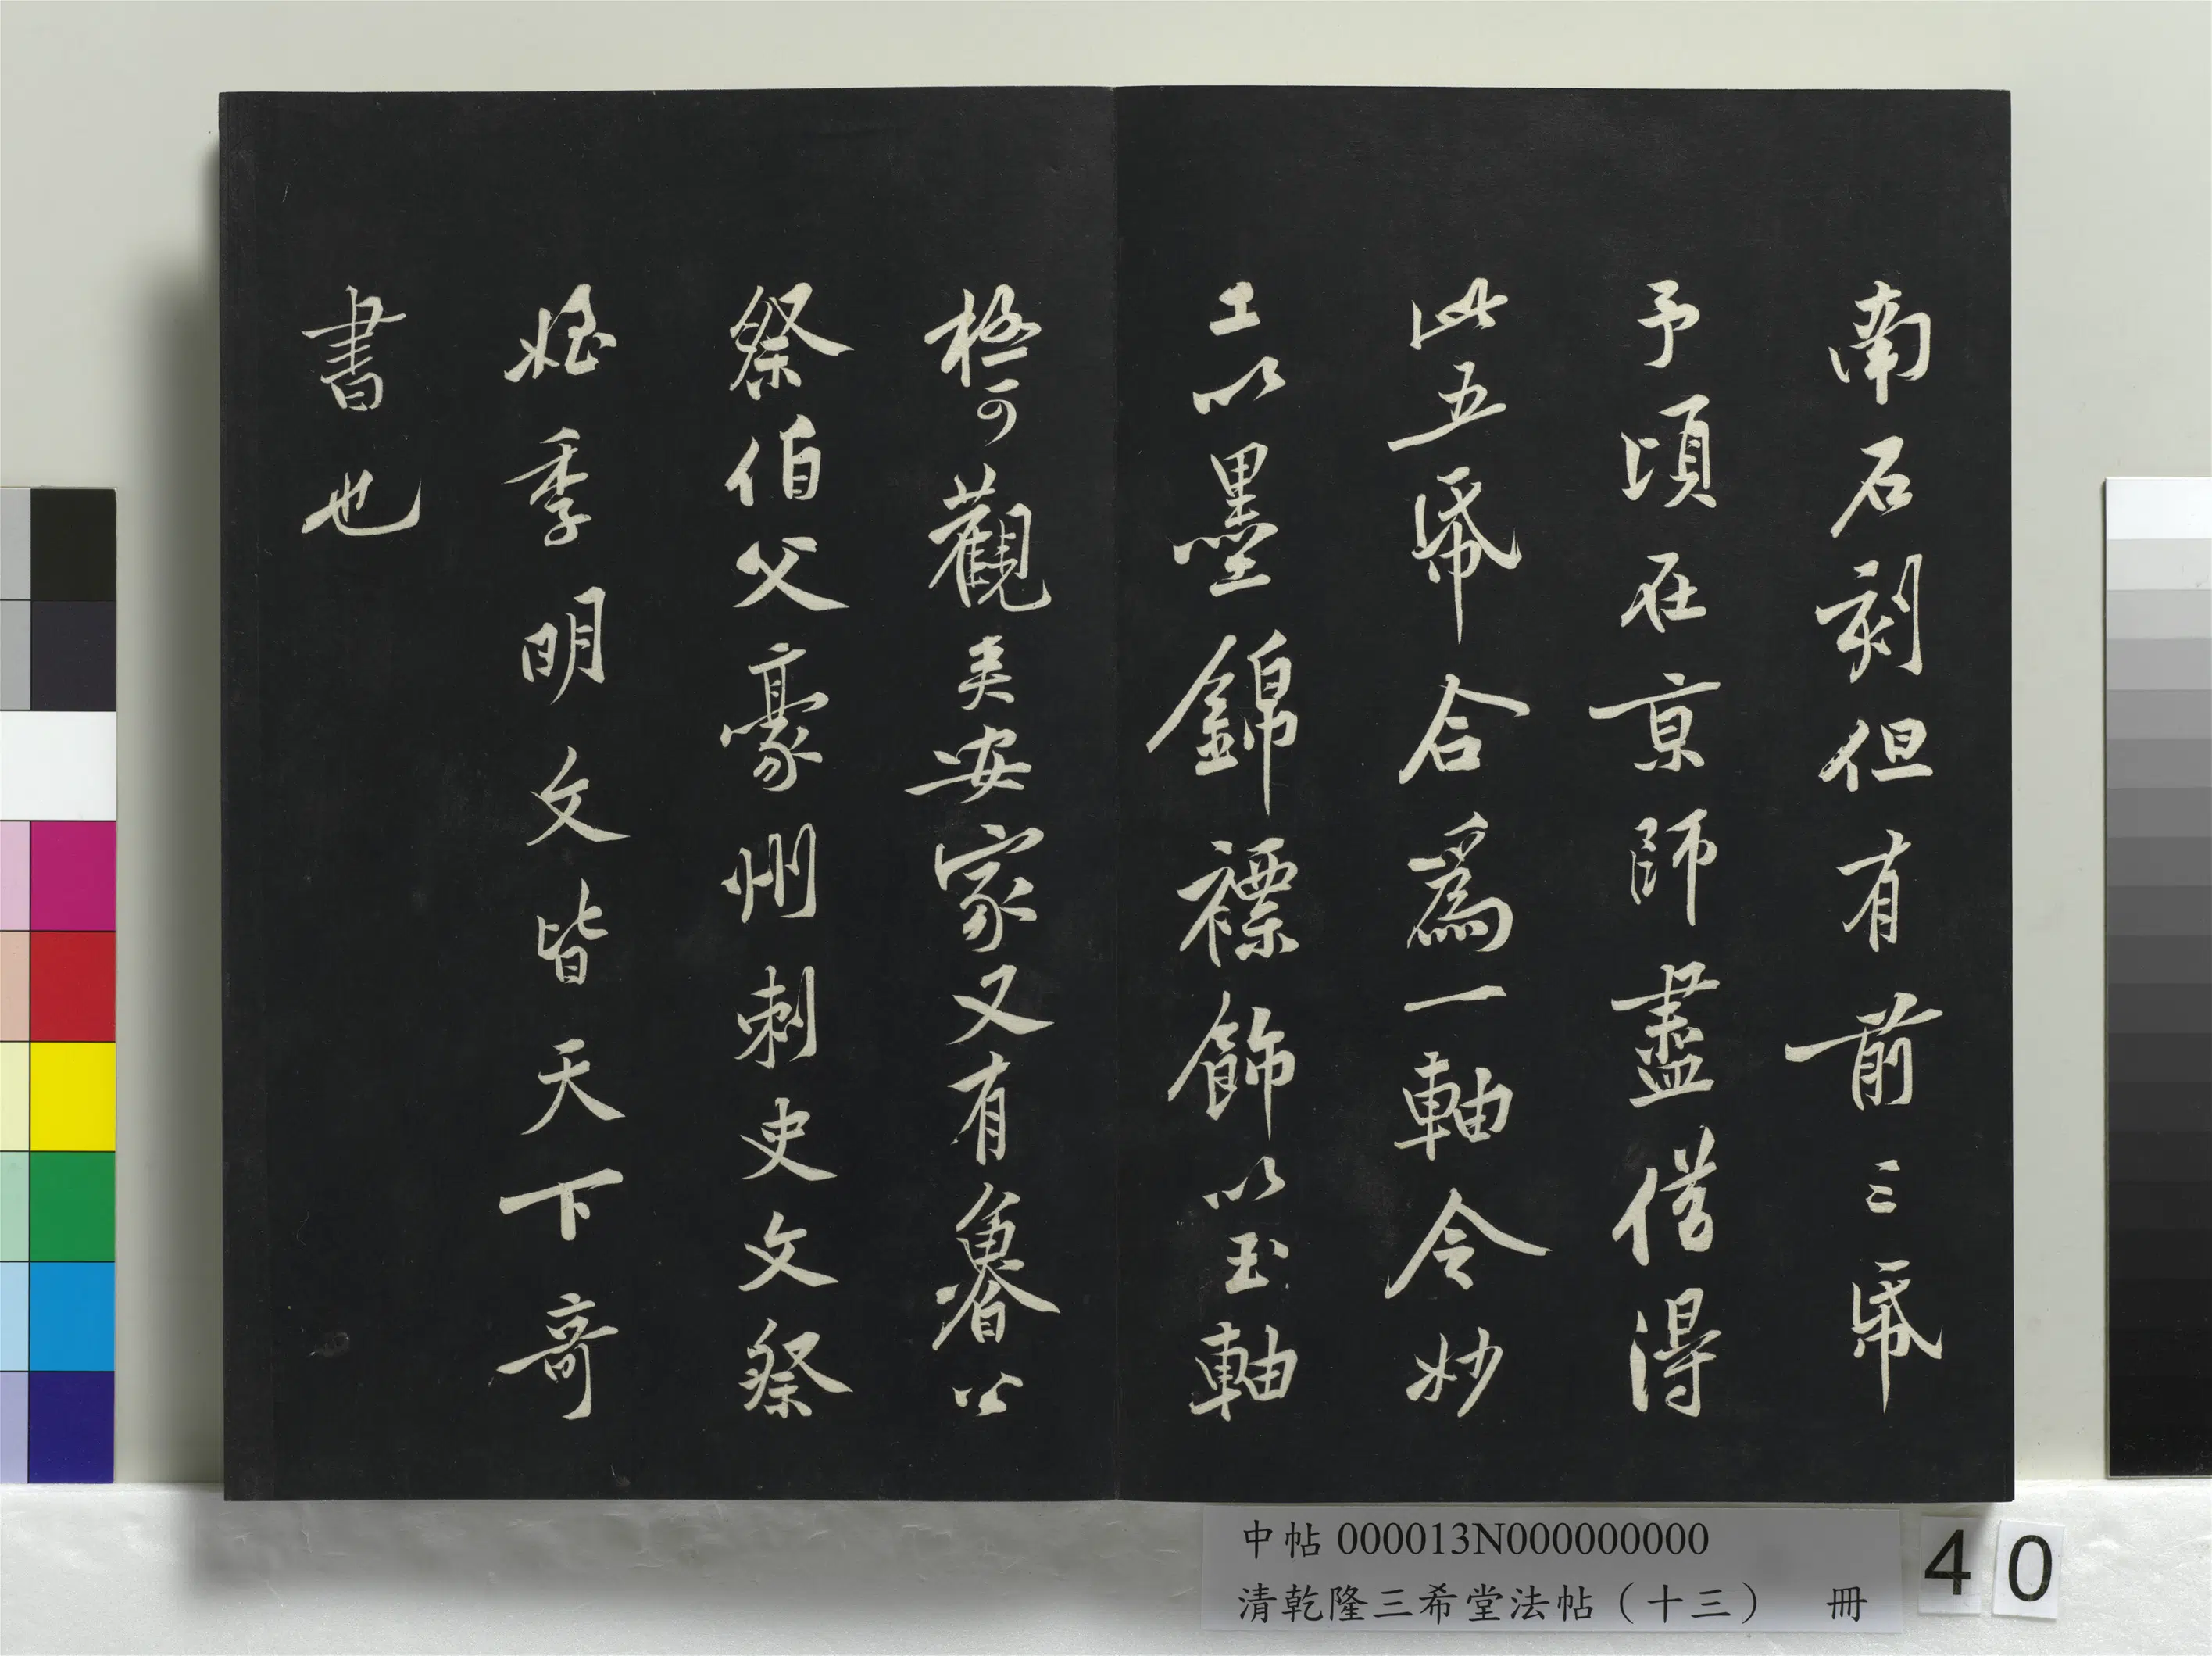 南石刻但有前三帋
予頃在京師盡借得
此五帋合爲一軸令妙
工以墨錦褾飾以玉軸
極可觀安家又有魯公
祭伯父豪州刺史文祭
姪季明文皆天下奇
書也
中帖 000013N000000000
清乾隆三希堂法帖（十三） 冊
40